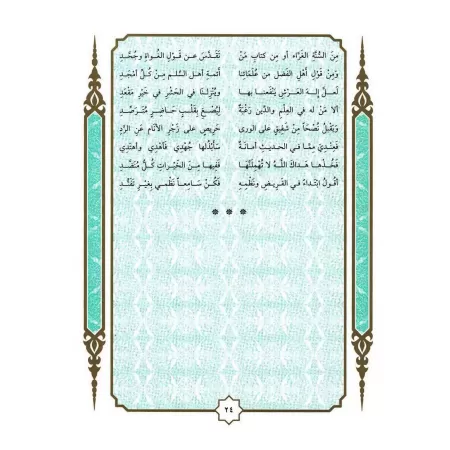 مِنَ السُّنَّةِ الغَرَّاءِ أو مِن كتابِ مَنْ تَقَدَّسَ عـن قَـوْلِ الغُـواةِ وجُحَّـدِ
ومِنْ قَوْلِ أهْلِ الفَضلِ من عُلَمَائِنا أئمةِ أهـل السَّلْـمِ مِنْ كُـلِّ أمْجَـدِ
لَعـلَّ إلـهَ العَـرْشِ يَنْفَعنـا بهـا ويُنْزِلنا في الحَشْرِ في خَيْرِ مَقْعَدِ
ألا مَنْ له في العِلْمِ والدِّينِ رَغْبَةٌ ليُصْغِ بِقَلْبٍ حَاضِرٍ مُتَرَصِّدِ
ويَقْبَلَ نُصْحَاً مِنْ شَفيقٍ على الورى حَريصٍ على زَجْرِ الأنامِ عَنِ الرَّدِ
فعِنديَ مِمَّا في الحديثِ أمَانَةٌ سأَبْذُلُها جُهْدِي فأهْدِي وأهتدِي
فخُذْهَا هَداكَ اللهُ لا تُهْمِلَنَّهَا فَفِيها مِنَ الخَيْراتِ كُلُّ مُنَضَّدِ
أقُولُ ابتداءً في القَريضِ ونَظْمِهِ فَكُنْ سَامِعاً نَظْمي بِغَيرِ تَفَنُّدِ
* * *
٢٤